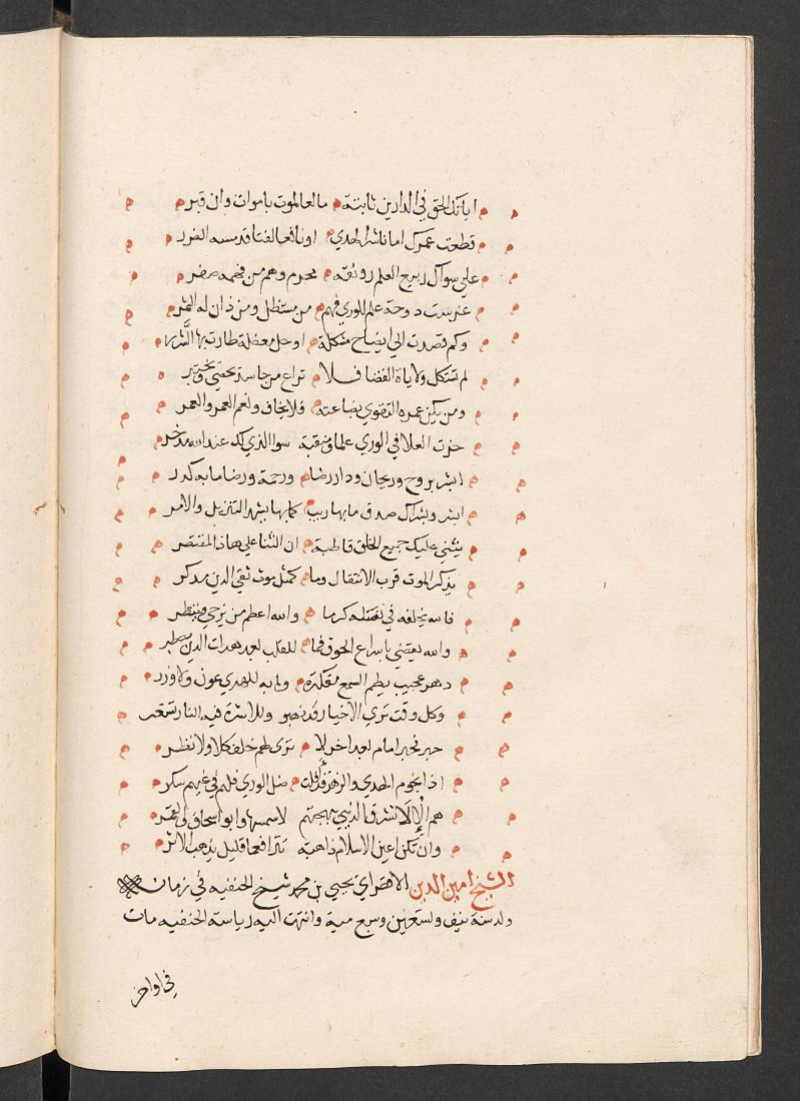 اباتك الحق في الدارين ثابتة ما لعالم موت بأموات وان قبر
قطعت عمرك اما ناشر الهدي او نافعا لفتا قد مسه الضرر
علي سواك ربيع العلم رونقه محرم وهم من فهمه صفر
غرست دوحة علم للوري فهم من مستظل ومن ذان له الثمر
وكم قصدت الي ايضاح مشكلة او حل معضلة طارت بها الشرر
لم تشكل ولاياة القضا فلا تراع من حاسد
ومن يكن عمره التقوي بضاعته فلا يخاف ونعم العمر والعمر
حزت العلا في الوري علما ومنقبة سوا الذي لك عند الله مدخر
ابشر بروح وريحان ودار رضا ورحمة ورضا ما به كدر
ابشر وبشراك صدق ما بها ريب كما بها يشهد التنزيل والامر
يثني عليك جميع الخلق قاطبة ان الثنا علي هذا المقتصر
يذكر الموت قرب الانتقال وما كمثل موت تقي الدين مدكر
فالله يخلفه في كرما والله اعظم من يرجي وينتظر
والله يقضي باسراع الحوق فما للقلب بعد بعدات الدين مصطبر
دهر عجيب يطم السمع منكره وما به للهدي عون ولا وزر
وكل وقت تري الاخيار قد ذهبو وللاشرة فيه النار تستعر
حبر فحبر امام بعد اخر لا تري لهم خلفا كلا ولا نظر
اذا نجوم الهدي والزهر قد افلت ضل الوري فلهم في غيهم سكر
هم الالا تشرق الدنيا ببهجتهم لا شمسها وابو اسحاق والقمر
وان تكن اعين الاسلام ذاهبة تترا فعما قليل يذهب الاثر
الشيخ امين الدين الاقصراي يحيي بن محمد شيخ الحنفيه في زمانه
ولد سنة نيف وتسعين وسبع مية وانتهت اليه رياسة الحنفيه مات
في اواخر